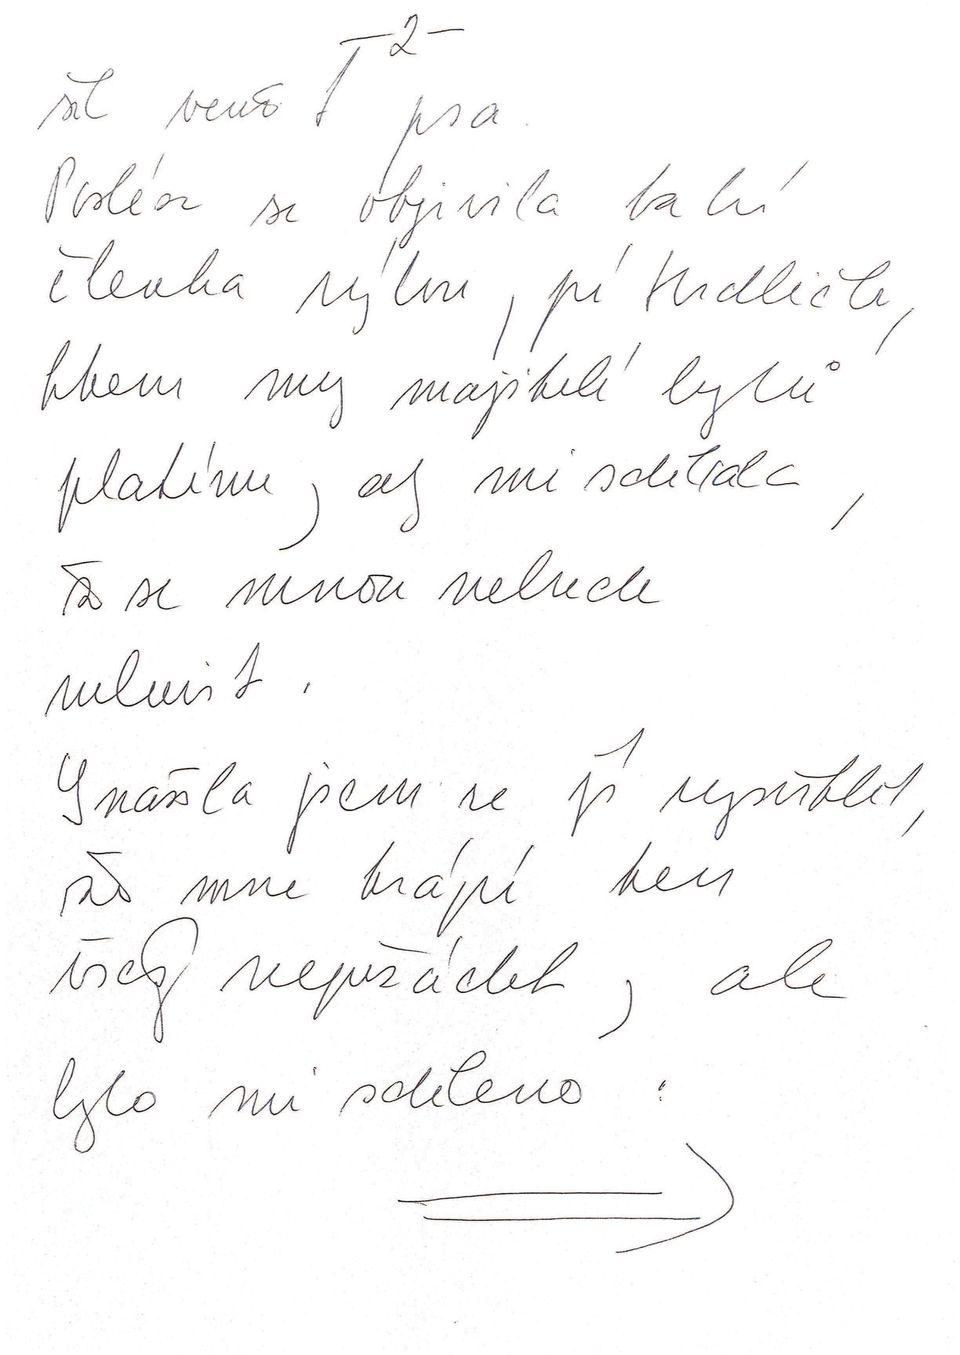 -2-
šel venčit psa.
Posléze se objevila také
členka výboru, pí Hrdličk,
kterou my majitelé bytů
platíme, a mi sdělila,
že se mnou nebude
mluvit.
Snažila jsem se jí vysvětlit,
že mne trápí ten
nepořádek, ale
bylo mi sděleno: